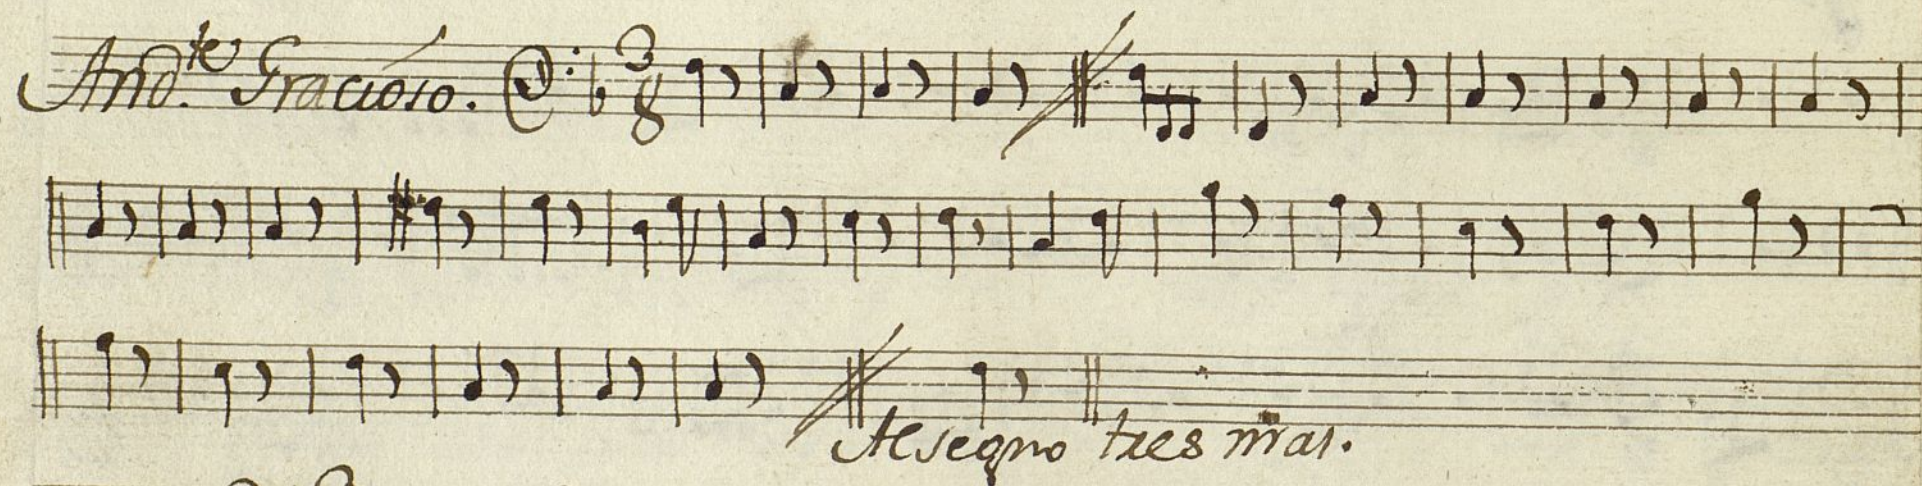 And.te Gracioso. 3/8
Al segno tres mas.